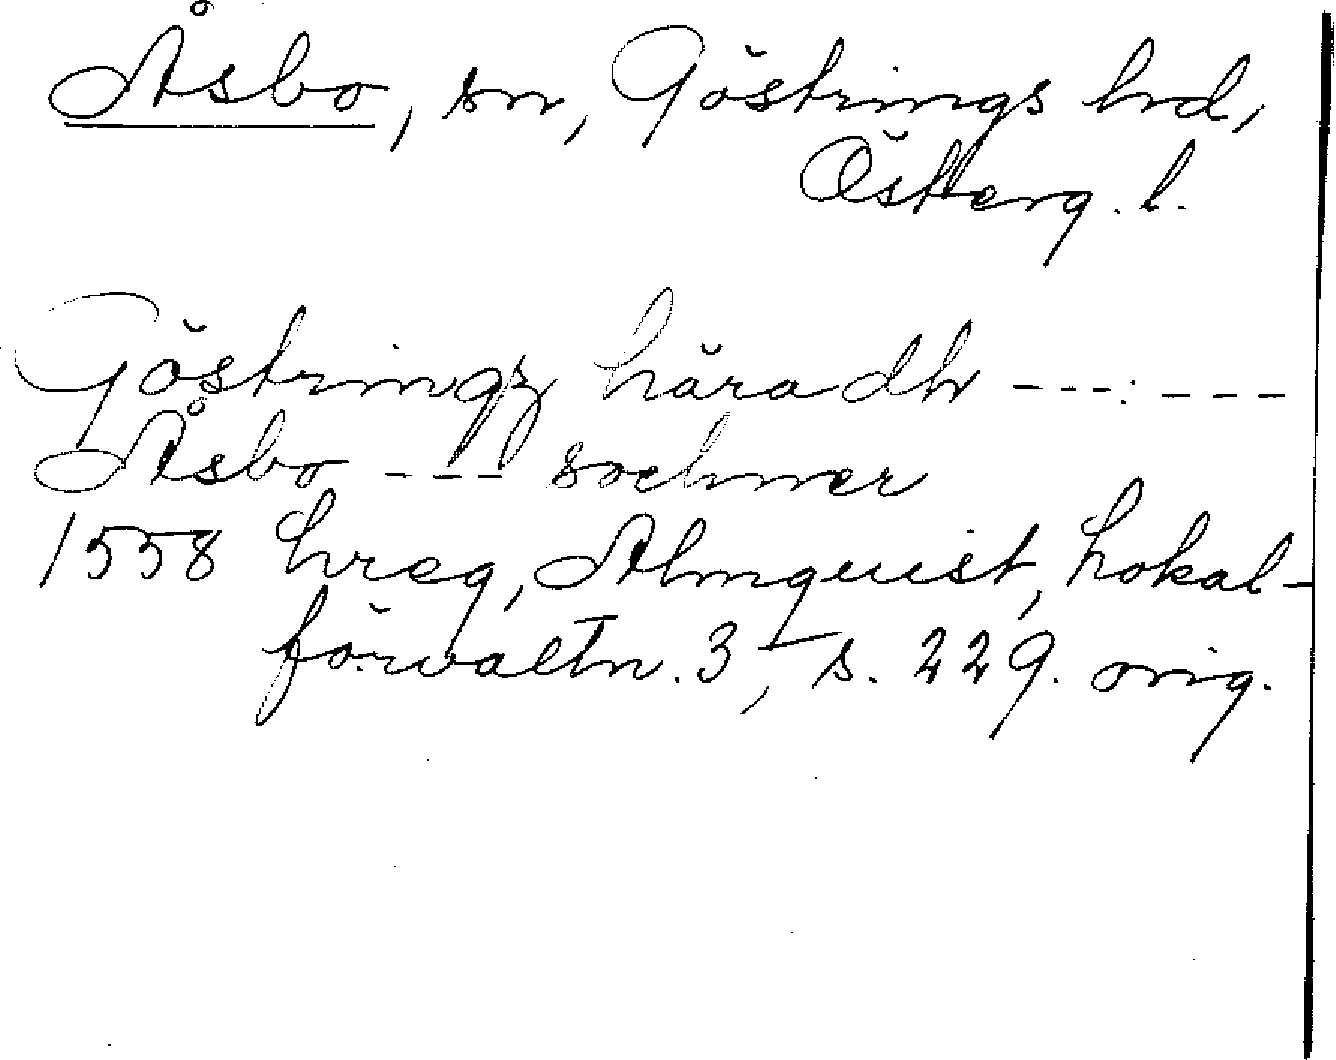 Åsbo, sn, Göstrings hd,
Österg. l.
Göstringz häradh ---:---
Åsbo --- sochner
1558 hreg, Almquist, Lokal-
förvaltn. 3, s. 229. orig.